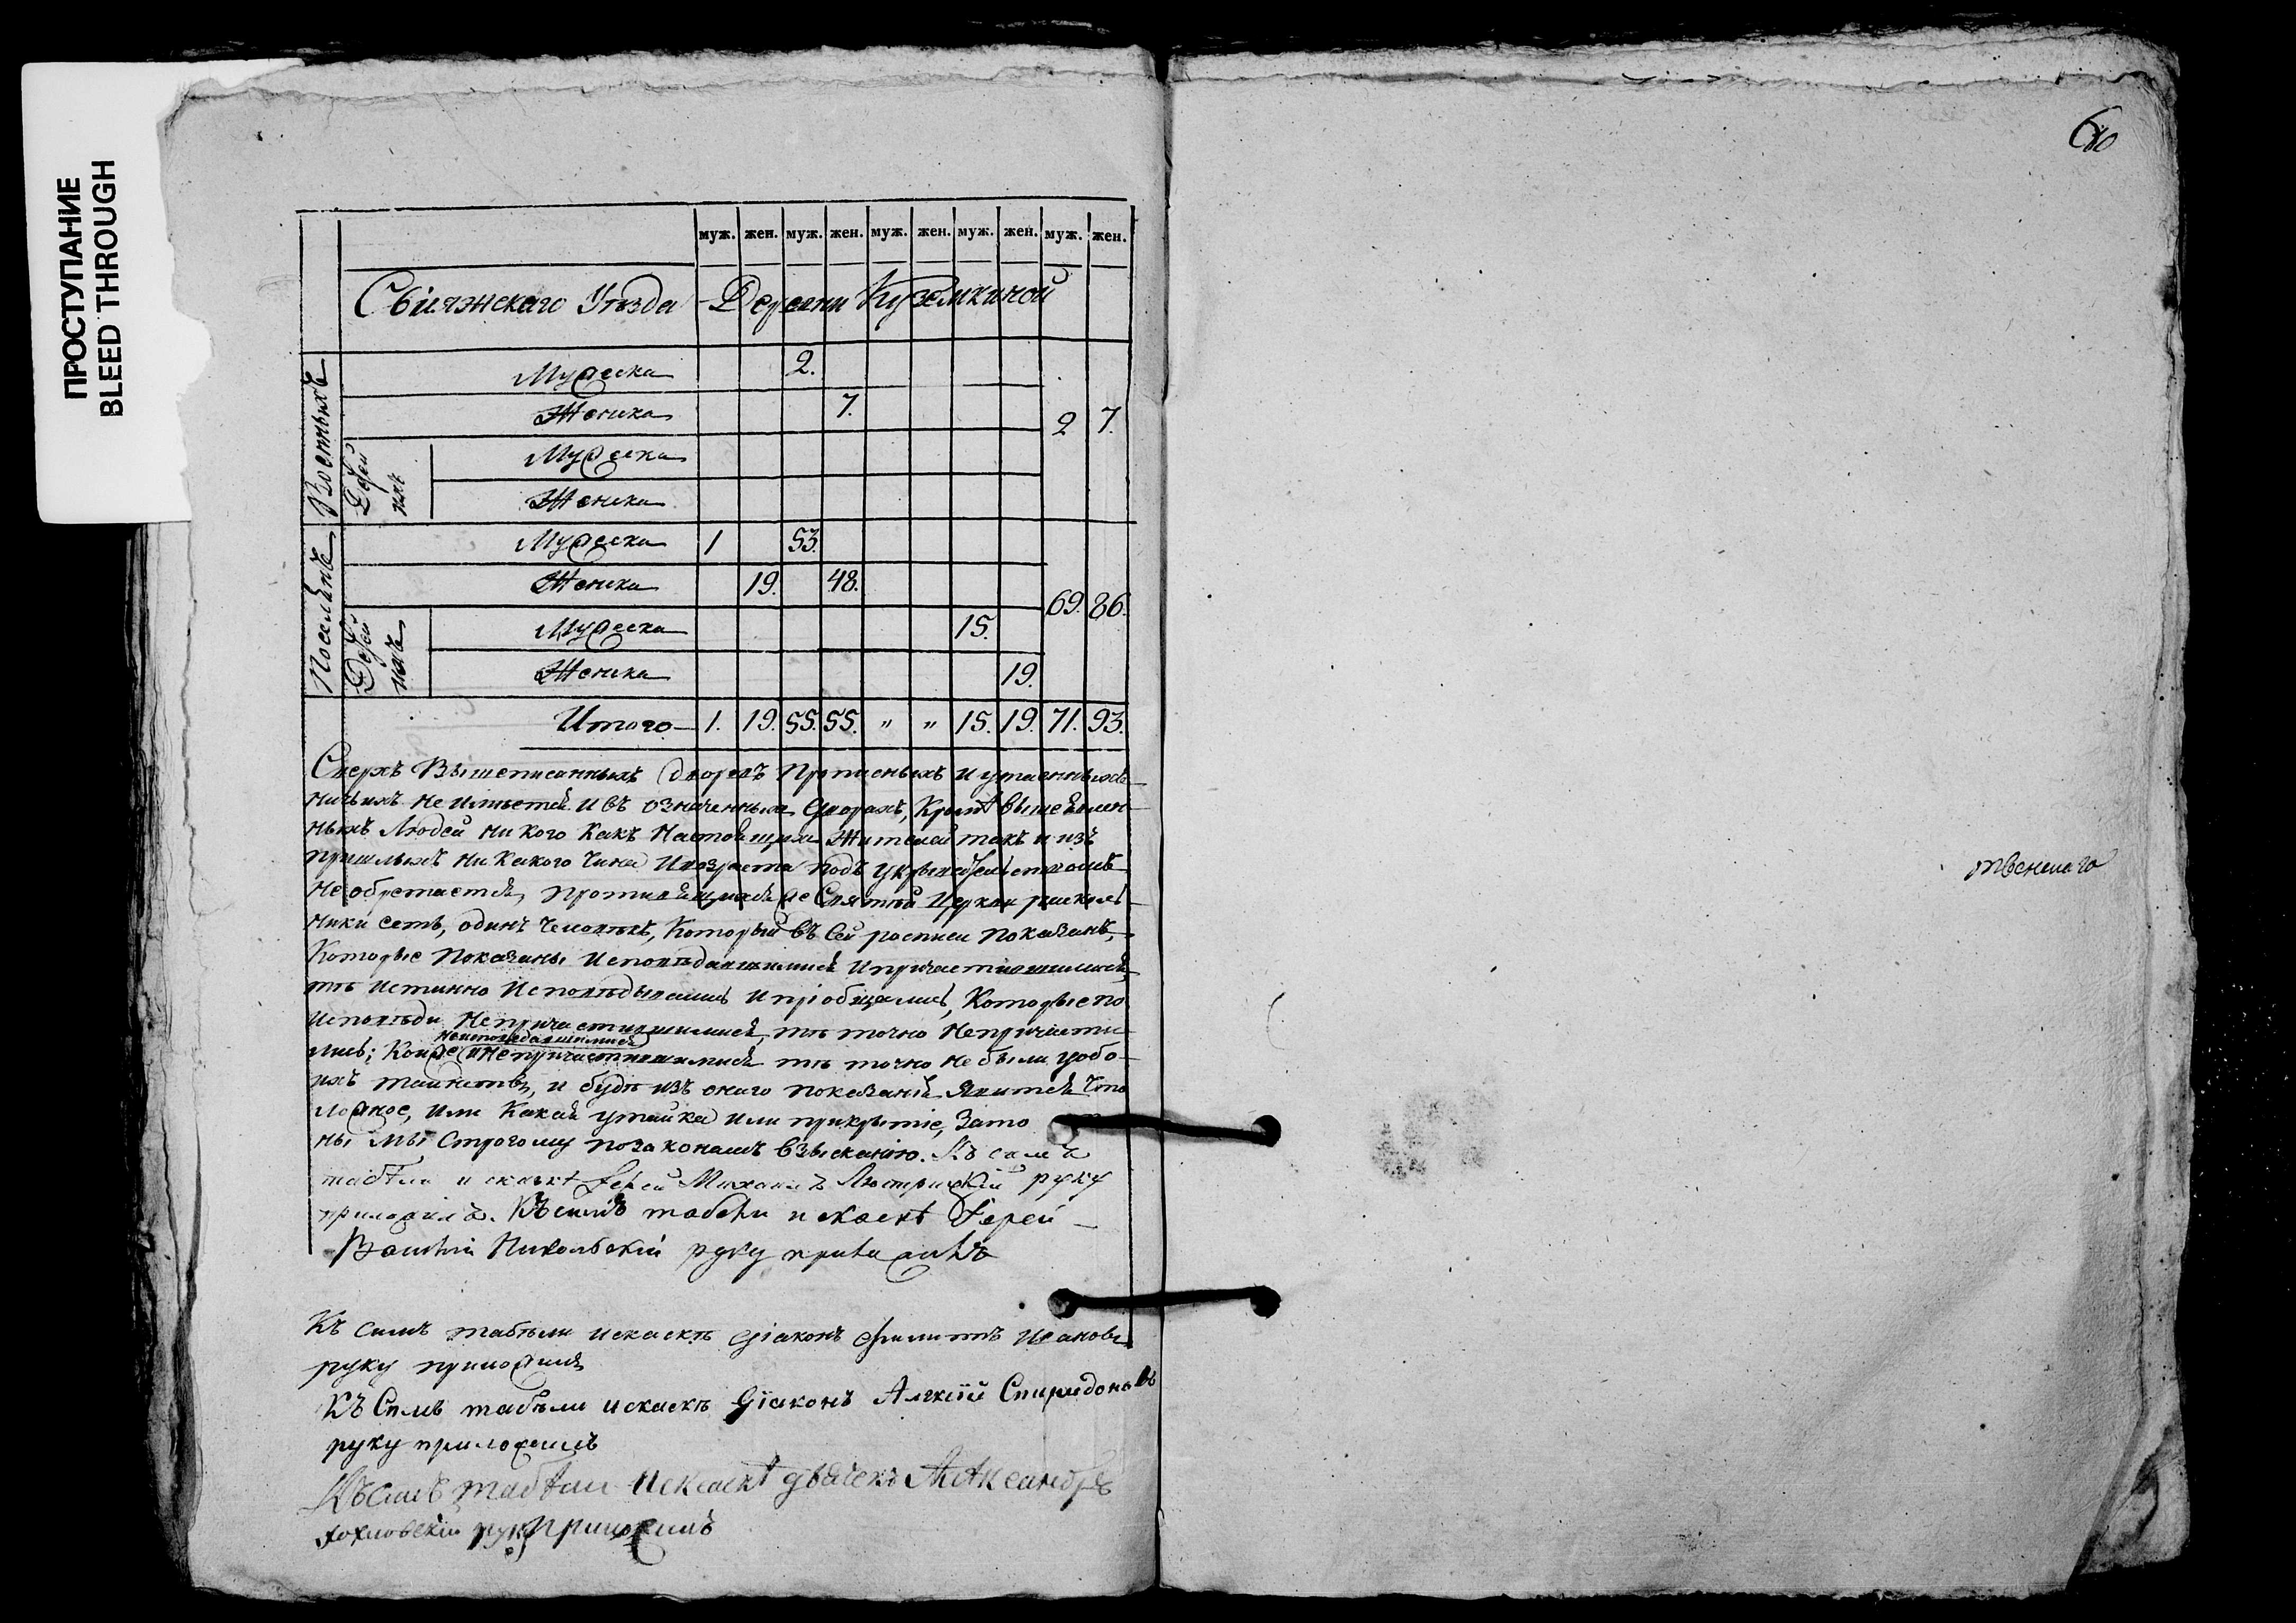 ПРОСТУПАНИЕ
BLEED THROUGH
60
муж. жен. муж. жен. муж. жен. муж. жен. муж. жен.
Свіяжскаго Уѣзда Деревни Куземкиной
Военныхъ
Мужеска 2.
Женска 7. 2 7.
Детей ихъ
Мужеска
Женска
Поселянъ
Мужеска 1 53.
Женска 19. 48. 69. 86.
Детей ихъ
Мужеска 15.
Женска 19.
Итого 1. 19. 55. 55. " " 15. 19. 71. 93.
Сверхъ Вышеписанныхъ дворовъ Прописныхъ и утаенныхъ
ничьихъ не имѣется и въ означенныхъ дворахъ, Кромѣ вышеявлен-
ныхъ Людей ни кого какъ Настоящихъ Жителей такъ и изъ
пришлыхъ ни какого чина и возраста подъ укрывательствомъ
не обретается, противящихся Святой Церкви расколь-
ники есть, одинъ человѣкъ, который въ сей росписи показанъ,
Которые Показаны Исповѣдавшимися и причастившимися,
тѣ истинно Исповѣдывались и пріобщались, Которые по
исповѣди не причастившимися, тѣ точно не причасти-
неисповедавшимися
лись; Кои же и непричастившимися тѣ точно не были у обо-
ихъ таинствъ, и будѣ изъ онаго показанія Явится что
ложное, или Какая утайка или прикрытіе, За то
ны мы строгому по законамъ взысканію. Къ симъ
табѣли и скаскѣ Іерей Михаилъ руку
приложилъ. Къ симъ табели и скаскѣ Іерей
Василій Никольскій руку приложилъ
Къ симъ табѣли и скаскѣ діаконъ Филиппъ Ивановъ
руку приложилъ
Къ Симъ табѣли и скаскѣ діаконъ Алексій Спиридоновъ
руку приложилъ
Къ симъ табѣли и скаскѣ дьячекъ Александръ
Хохловскій руку приложилъ
твеннаго